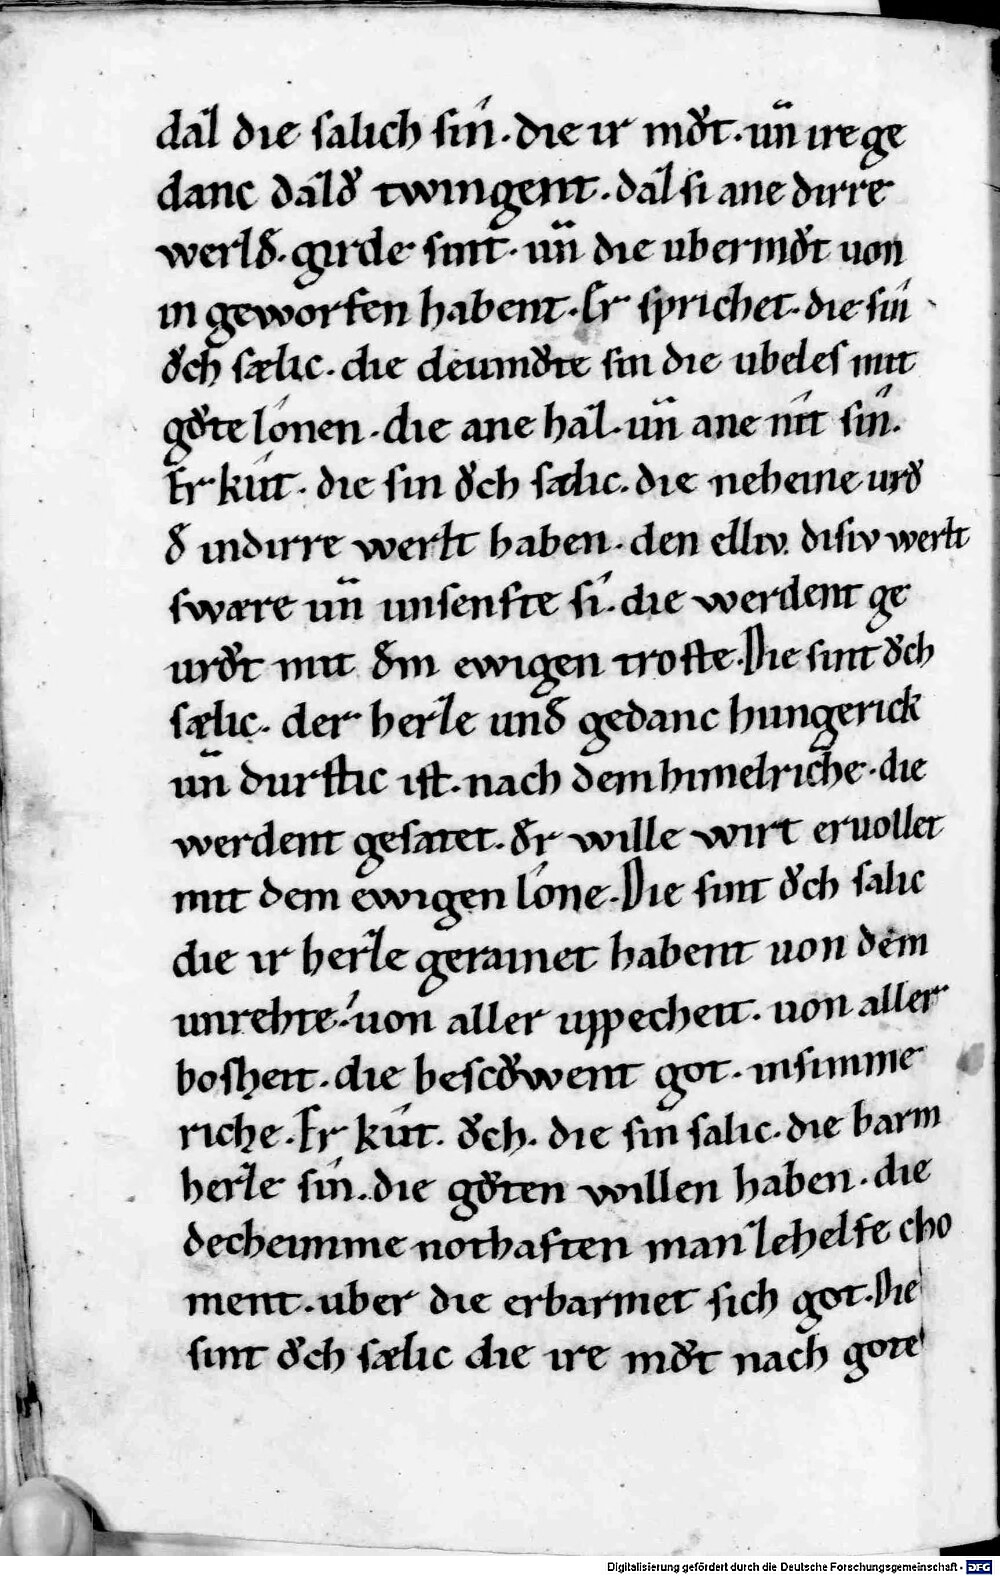 daꝫ die salich sín · die ir mǒt · uñ ire ge
danc daꝫ dͦ twingent · daꝫ si ane dirre
werlꝺ̄ · girde sint · uñ die ubermǒt uon
in geworfen habent · Er sprichet · die sín
ǒch sælic · die deumǒte sin die ubeles mit
gǒte lónen · die ane haꝫ · uñ ane nít sín .
Er kút · die sin ǒch sælic · die neheine urǒ
ꝺ̄ indirre werlt haben · den elliv disiv werlt
swære uñ unsenfte sí · die werdent ge
urǒt mit ꝺ̄m ewigen troste · Die sint ǒch
sælic · der herꝫe unꝺ̄ gedanc hungerick
uñ durstic ist · nach dem himelriche · die
werdent gesatet · ꝺ̄r wille wirt eruollet
mit dem ewigen lóne · Die sint ǒch salic
die ir herꝫe gerainet habent uon dem
unrehte · uon aller uppecheit · uon aller
bosheit · die bescǒwent got · insimme
riche · Er kút · ǒch · die sin salic · die barm
herꝫe sín · die gǒten willen haben · die
decheimme nothaften man ꝫehelfe cho
ment · uber die erbarmet sich got · Die
sint ǒch sælic die ire mǒt nach gote
Digitalisierung gefördert durch die Deutsche Forschungsgemeinschaft - DFG